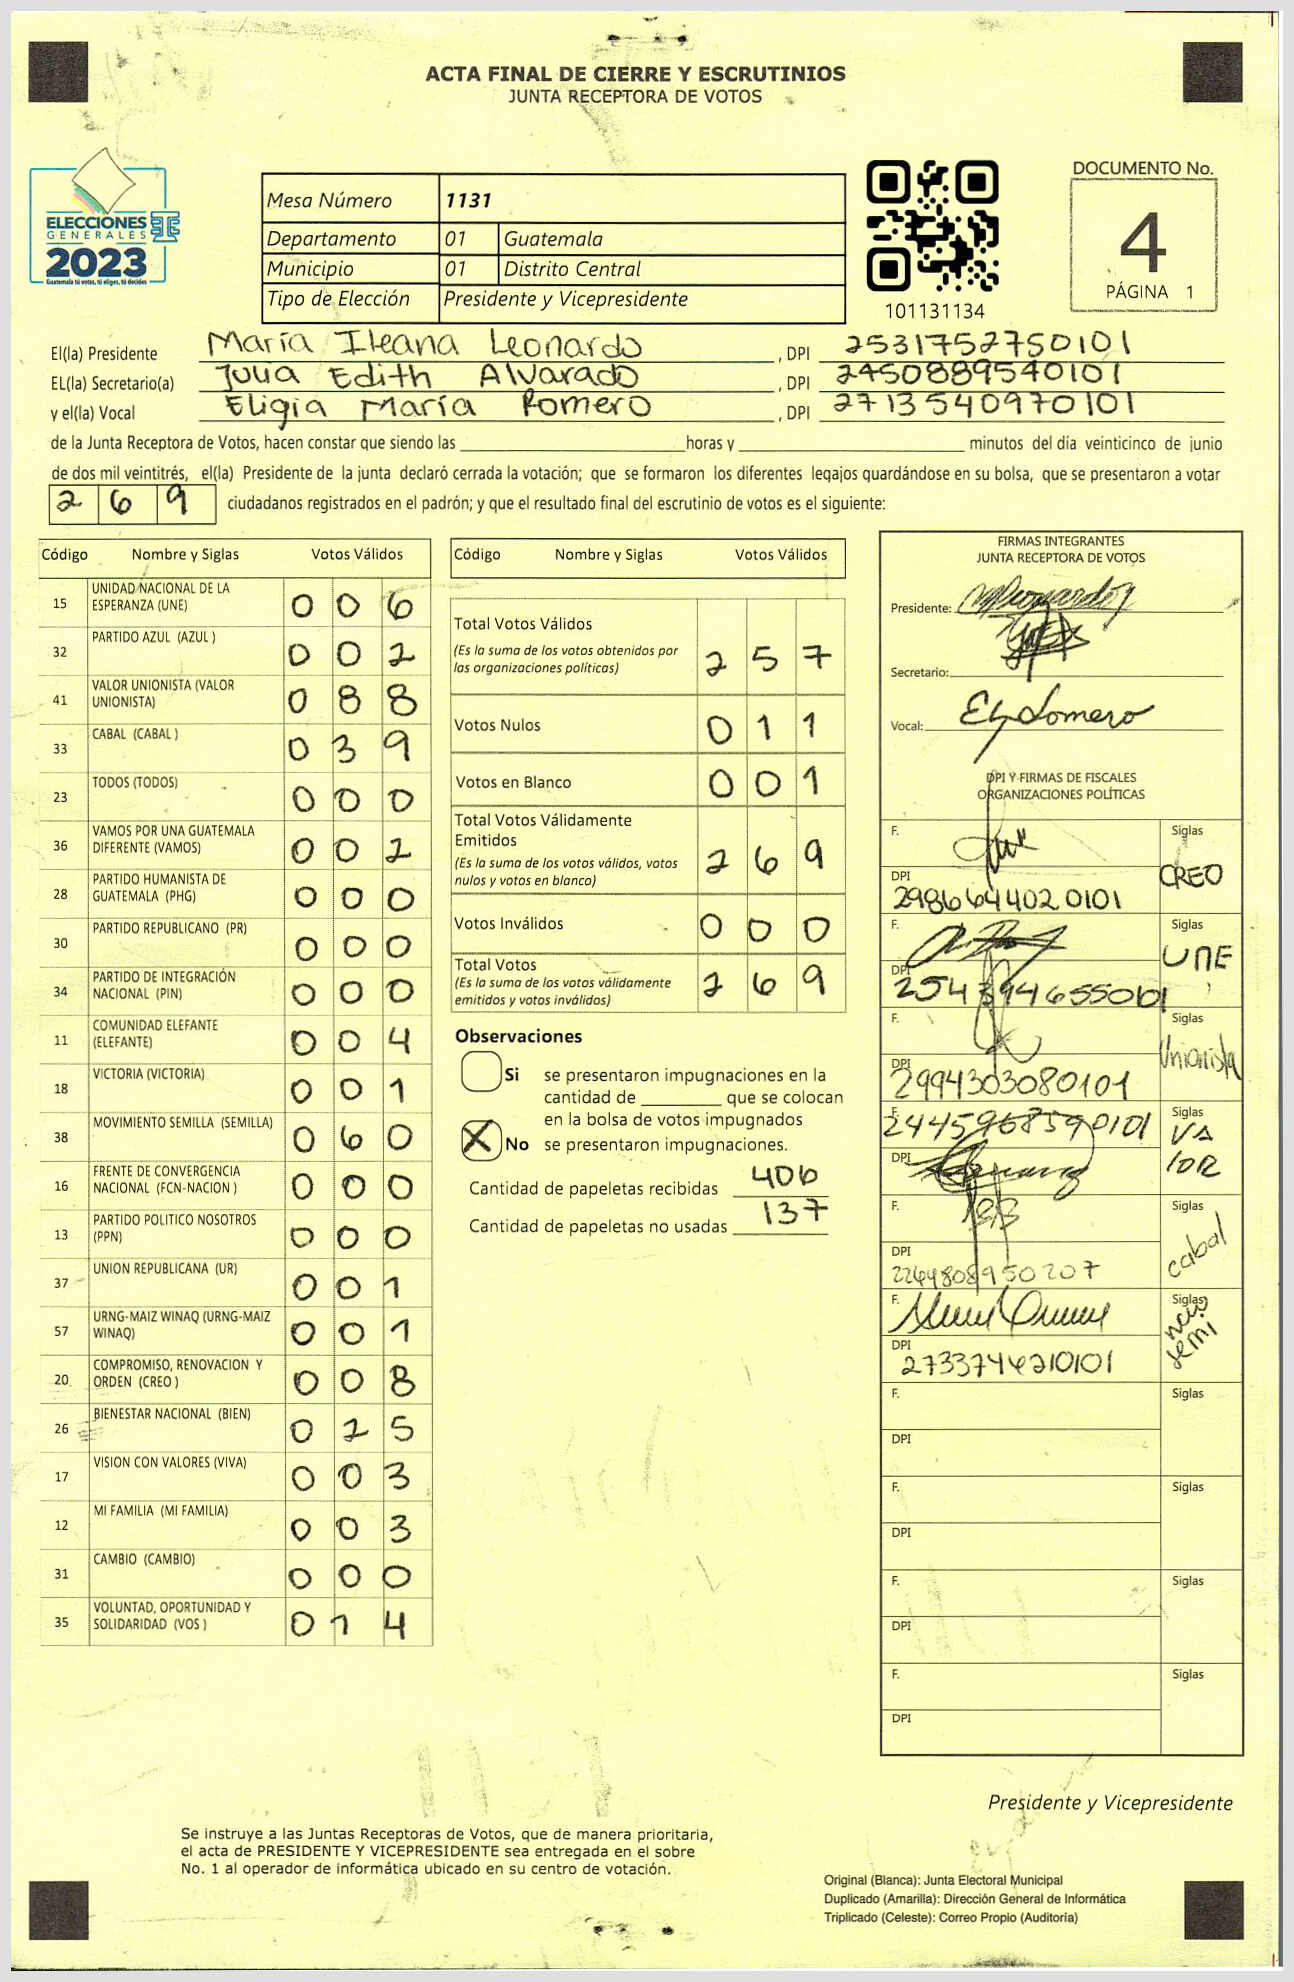 ACTA FINAL DE CIERRE Y ESCRUTINIOS
JUNTA RECEPTORA DE VOTOS
ELECCIONES
GENERALES
2023
Guatemala tú votas, tú eliges, tú decides
TSE
Mesa Número 1131
Departamento 01 Guatemala
Municipio 01 Distrito Central
Tipo de Elección Presidente y Vicepresidente
101131134
DOCUMENTO No.
4
PÁGINA 1
El(la) Presidente María Ileana Leonardo , DPI 2531752750101
EL(la) Secretario(a) Julia Edith Alvarado , DPI 2450889540101
y el(la) Vocal Eligia María Romero , DPI 2713540970101
de la Junta Receptora de Votos, hacen constar que siendo las horas y minutos del día veinticinco de junio
de dos mil veintitrés, el(la) Presidente de la junta declaró cerrada la votación; que se formaron los diferentes legajos guardándose en su bolsa, que se presentaron a votar
269 ciudadanos registrados en el padrón; y que el resultado final del escrutinio de votos es el siguiente:
Código Nombre y Siglas Votos Válidos
15 UNIDAD NACIONAL DE LA
ESPERANZA (UNE) 006
32 PARTIDO AZUL (AZUL ) 002
41 VALOR UNIONISTA (VALOR
UNIONISTA) 088
33 CABAL (CABAL ) 039
23 TODOS (TODOS) 000
36 VAMOS POR UNA GUATEMALA
DIFERENTE (VAMOS) 002
28 PARTIDO HUMANISTA DE
GUATEMALA (PHG) 000
30 PARTIDO REPUBLICANO (PR) 000
34 PARTIDO DE INTEGRACIÓN
NACIONAL (PIN) 000
11 COMUNIDAD ELEFANTE
(ELEFANTE) 004
18 VICTORIA (VICTORIA) 001
38 MOVIMIENTO SEMILLA (SEMILLA) 060
16 FRENTE DE CONVERGENCIA
NACIONAL (FCN-NACION ) 000
13 PARTIDO POLITICO NOSOTROS
(PPN) 000
37 UNION REPUBLICANA (UR) 001
57 URNG-MAIZ WINAQ (URNG-MAIZ
WINAQ) 001
20 COMPROMISO, RENOVACION Y
ORDEN (CREO ) 008
26 BIENESTAR NACIONAL (BIEN) 025
17 VISION CON VALORES (VIVA) 003
12 MI FAMILIA (MI FAMILIA) 003
31 CAMBIO (CAMBIO) 000
35 VOLUNTAD, OPORTUNIDAD Y
SOLIDARIDAD (VOS ) 014
Código Nombre y Siglas Votos Válidos
Total Votos Válidos
(Es la suma de los votos obtenidos por
las organizaciones políticas) 257
Votos Nulos 011
Votos en Blanco 001
Total Votos Válidamente
Emitidos
(Es la suma de los votos válidos, votos
nulos y votos en blanco) 269
Votos Inválidos 000
Total Votos
(Es la suma de los votos válidamente
emitidos y votos inválidos) 269
Observaciones
Si se presentaron impugnaciones en la
cantidad de ________ que se colocan
en la bolsa de votos impugnados
X No se presentaron impugnaciones.
Cantidad de papeletas recibidas 406
Cantidad de papeletas no usadas 137
FIRMAS INTEGRANTES
JUNTA RECEPTORA DE VOTOS
Presidente:
Secretario:
Vocal:
DPI Y FIRMAS DE FISCALES
ORGANIZACIONES POLÍTICAS
F. Siglas
CREO
DPI
2986644020101
F. Siglas
UNE
DPI
F. Siglas
Unionista
DPI
2994303080101
F. Siglas
2445968590101 VA
LOR
DPI
F. Siglas
cabal
DPI
2264808950207
F. Siglas
DPI
2733744210101
F. Siglas
DPI
F. Siglas
DPI
F. Siglas
DPI
F. Siglas
DPI
Presidente y Vicepresidente
Se instruye a las Juntas Receptoras de Votos, que de manera prioritaria,
el acta de PRESIDENTE Y VICEPRESIDENTE sea entregada en el sobre
No. 1 al operador de informática ubicado en su centro de votación.
Original (Blanca): Junta Electoral Municipal
Duplicado (Amarilla): Dirección General de Informática
Triplicado (Celeste): Correo Propio (Auditoría)